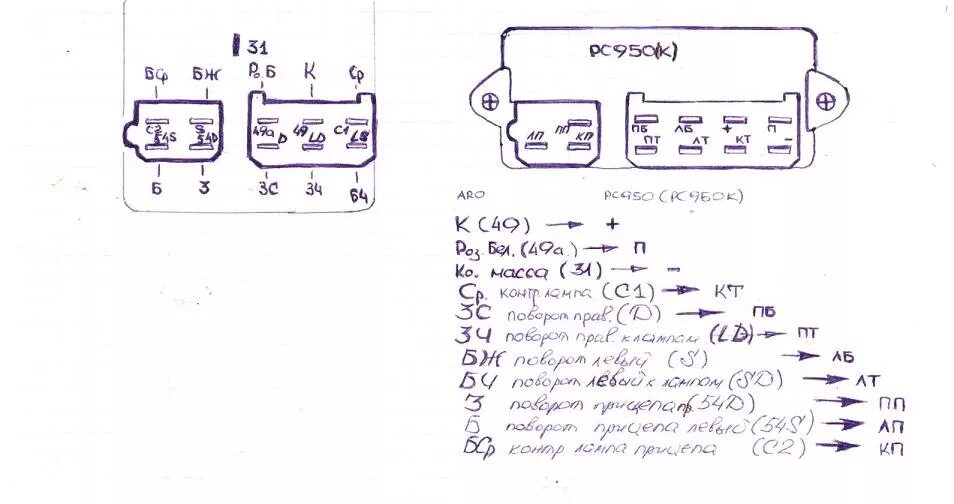 31
БЖ Роз.Б К Ср
БСр
С2 S 49а 49 С1
54S 54D D LD LS
Б З ЗС ЗЧ БЧ
РС950(К)
ЛП ПП КП
ПБ ЛБ + П
ПТ ЛТ КТ -
ARO РС950 (РС950К)
К (49) → +
Роз.Бел. (49а.) → П
Ко. масса (31) → -
Ср. контр лампа (С1) → КТ
ЗС поворот прав. (D) → ПБ
ЗЧ поворот прав. к лампам (LD) → ПТ
БЖ поворот левый (S) → ЛБ
БЧ поворот левый к лампам (SD) → ЛТ
З поворот прицепа пр. (54D) → ПП
Б поворот прицепа левый (54S) → ЛП
БСр контр лампа прицепа (С2) → КП